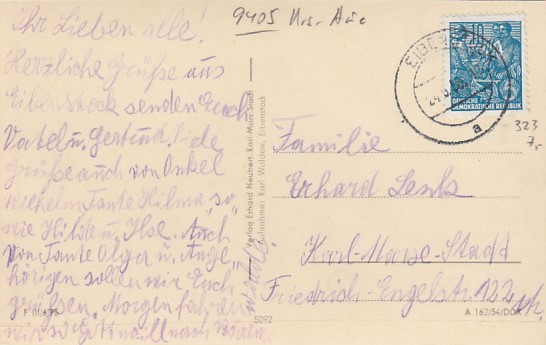 Ihr Lieben alle!
Herzliche Grüße aus
Eibenstock senden Euch
Vatel u. Gertrud. Viele
Grüße auch von Onkel
Wilhelm Tante Hilma so,
wie Hilde u. Ilse. Auch
von Tante Olga u. Ange,
hörigen sollen wir Euch
grüßen. Morgen fahren
wir nach
9405 Krs. Aue
EIBENSTOCK
a
10
DEUTSCHE
DEMOKRATISCHE REPUBLIK
323
7,-
Verlag Erhard Neubert, Karl-Marx-Stadt
Aufnahme: Karl Waldow, Eibenstock
Familie
Erhard Lenk
Karl-Marx-Stadt
Friedrich-Engelstr. 122
5092
A 162/54/DDR